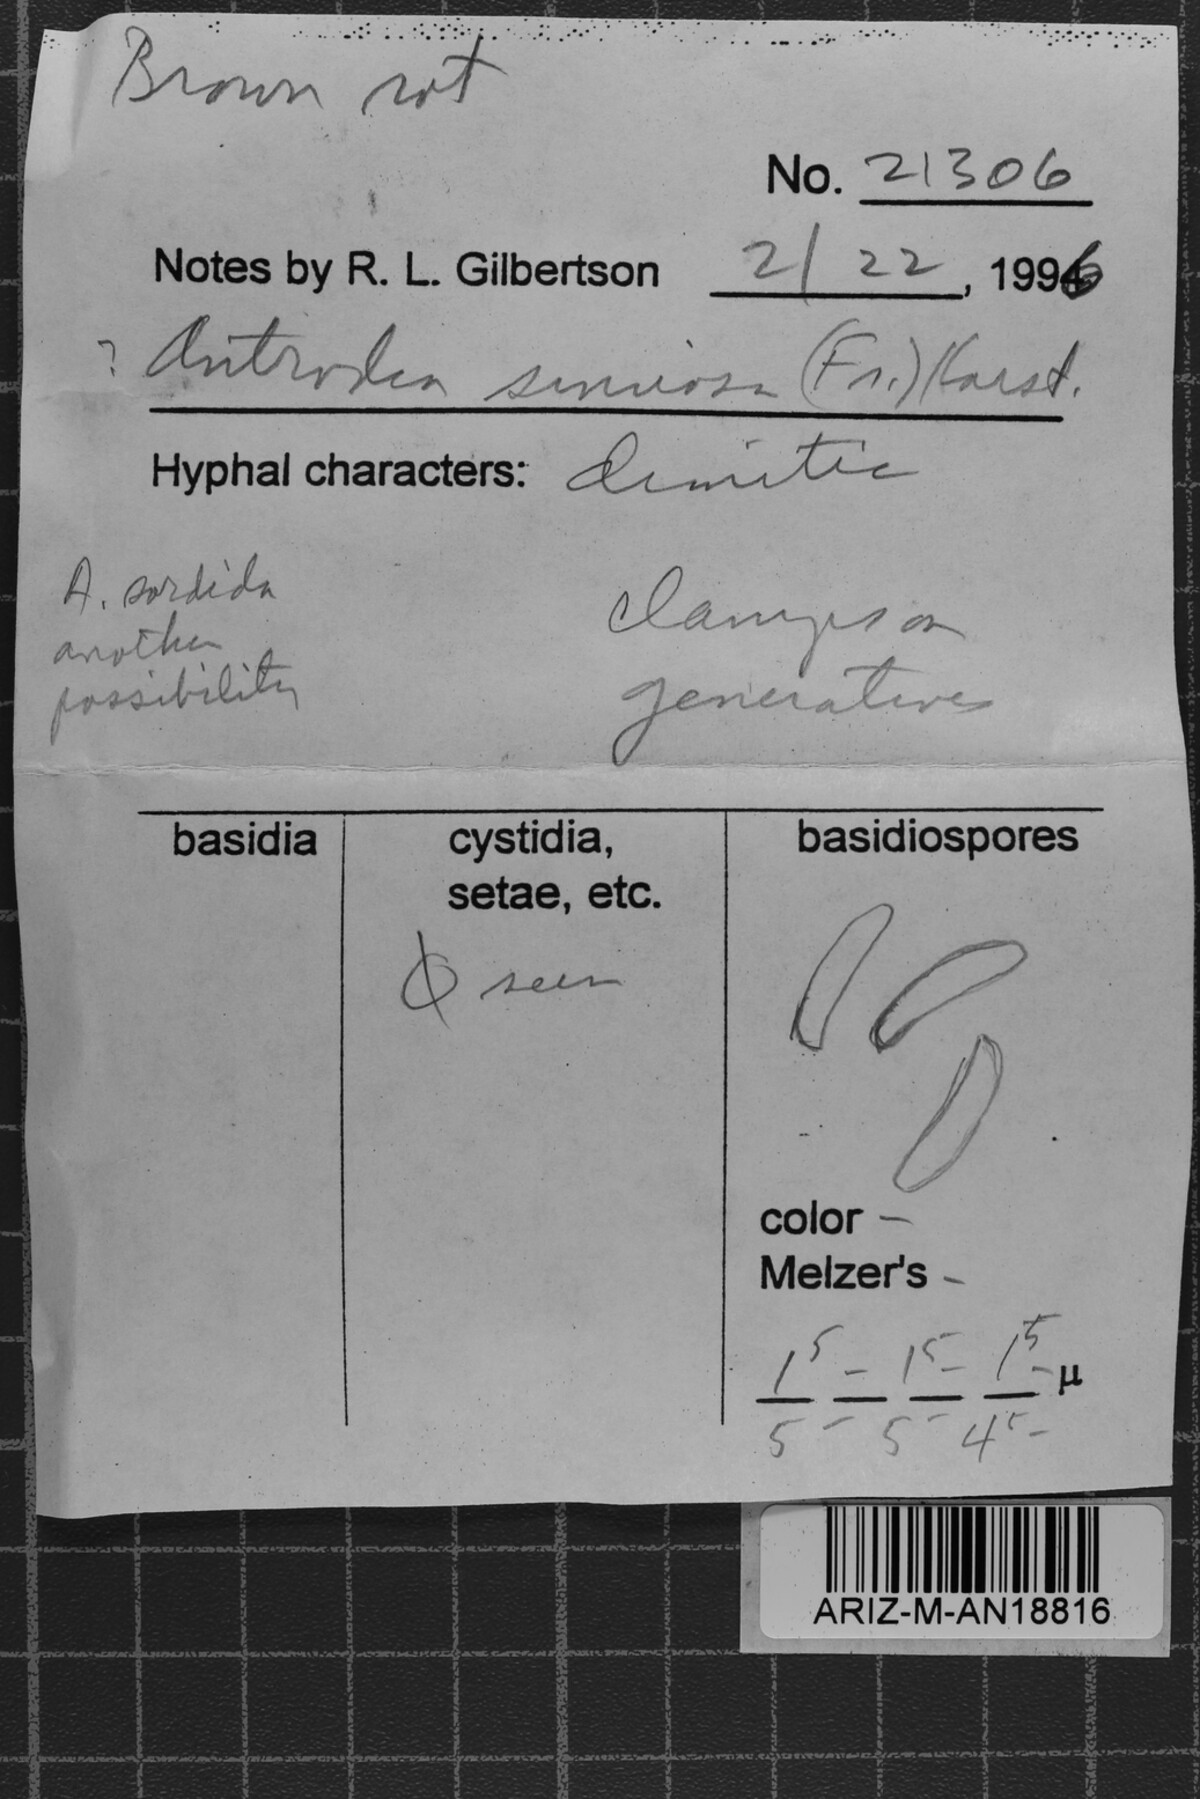 Brown rot
No. 21306
Notes by R. L. Gilbertson 2/22, 1996
? Antrodia sinuosa (Fr.) Karst.
Hyphal characters: dimitic
A. sordida
another
possibility
clamps on
generatives
basidia
cystidia,
setae, etc.
basidiospores
ϕ seen
color –
Melzer's –
1⁵ – 1⁵ – 1⁵ – µ
5 – 5 – 4⁵ –
ARIZ-M-AN18816